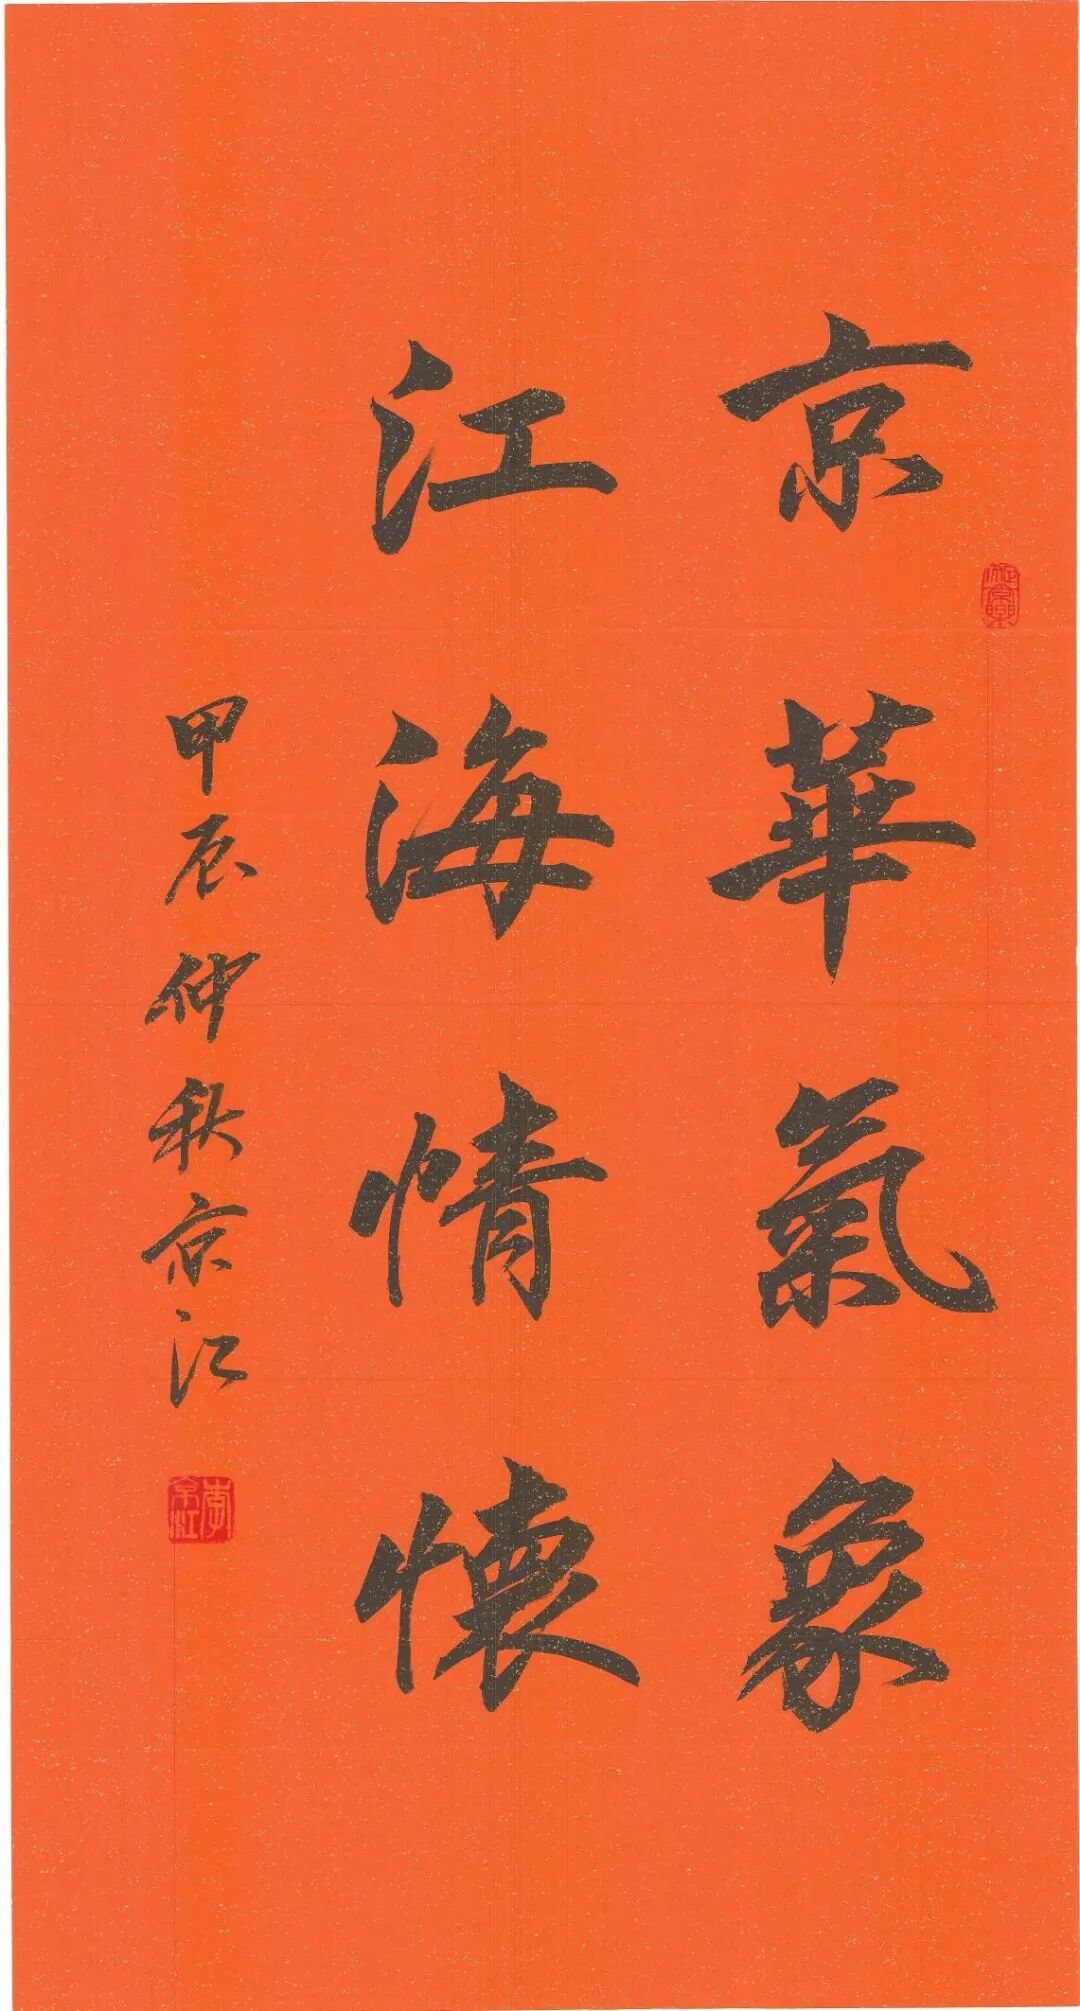 京華氣象
江海情懷
甲辰仲秋京江
李京江